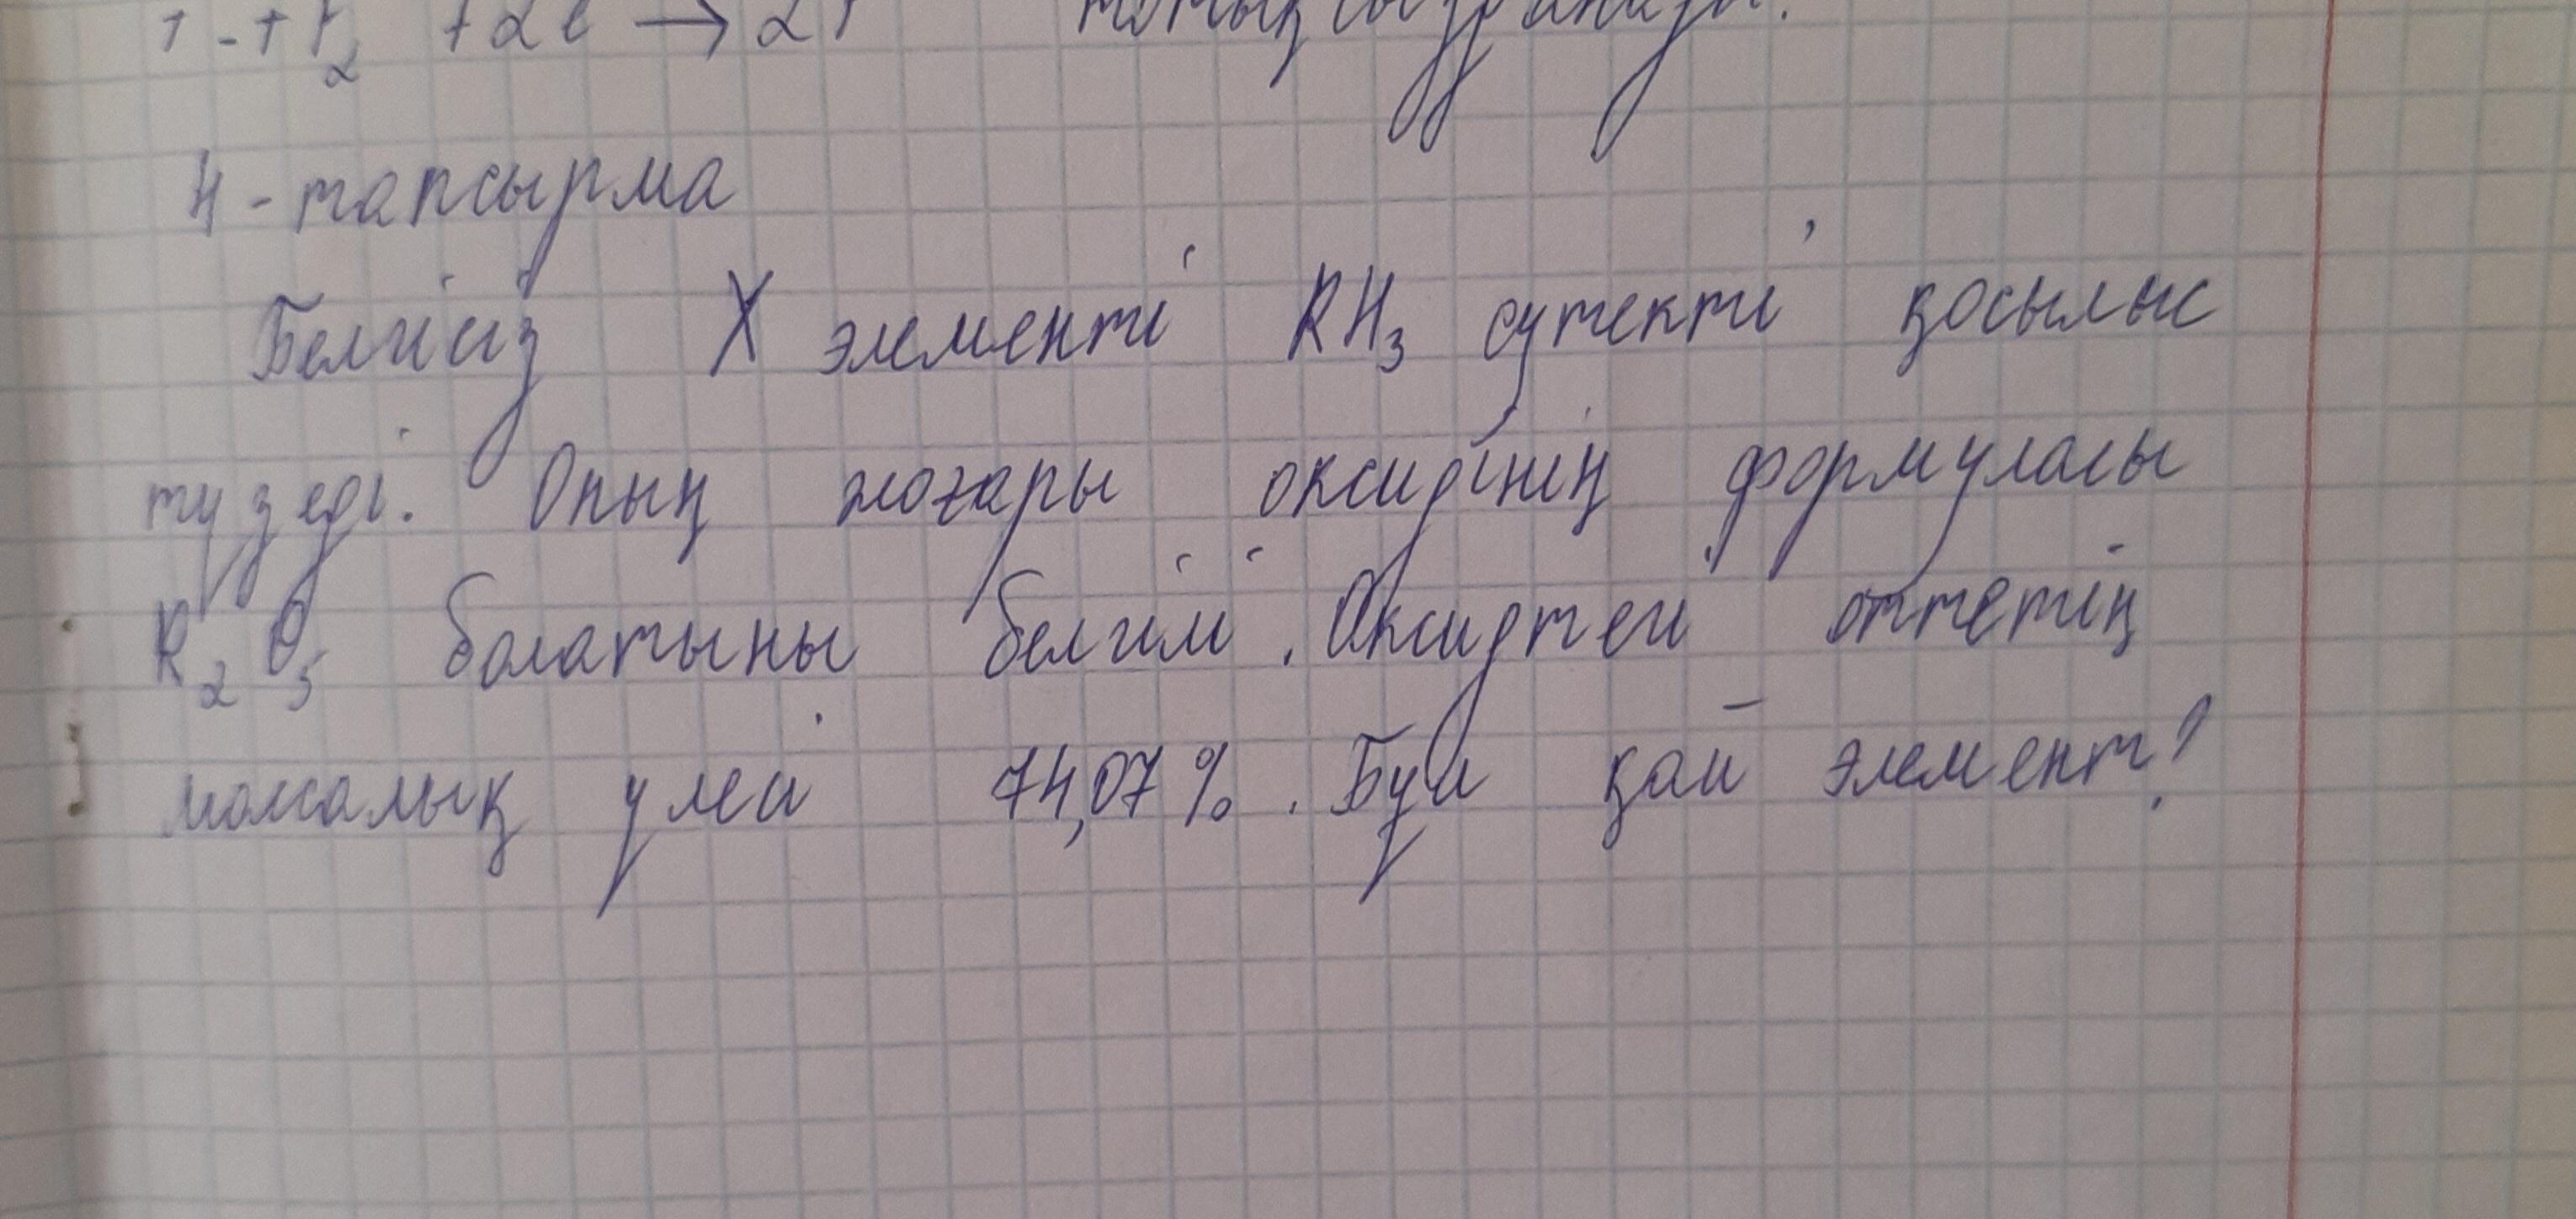 +2e → 2F
4-тапсырма
Белгісіз X элементі RH₃ сутекті қосылыс
түзеді. Оның жоғары оксидінің формуласы
R₂O₅ болатыны белгілі. Оксидтегі оттетің
массалық үлесі 74,07%. Бұл қай элемент?